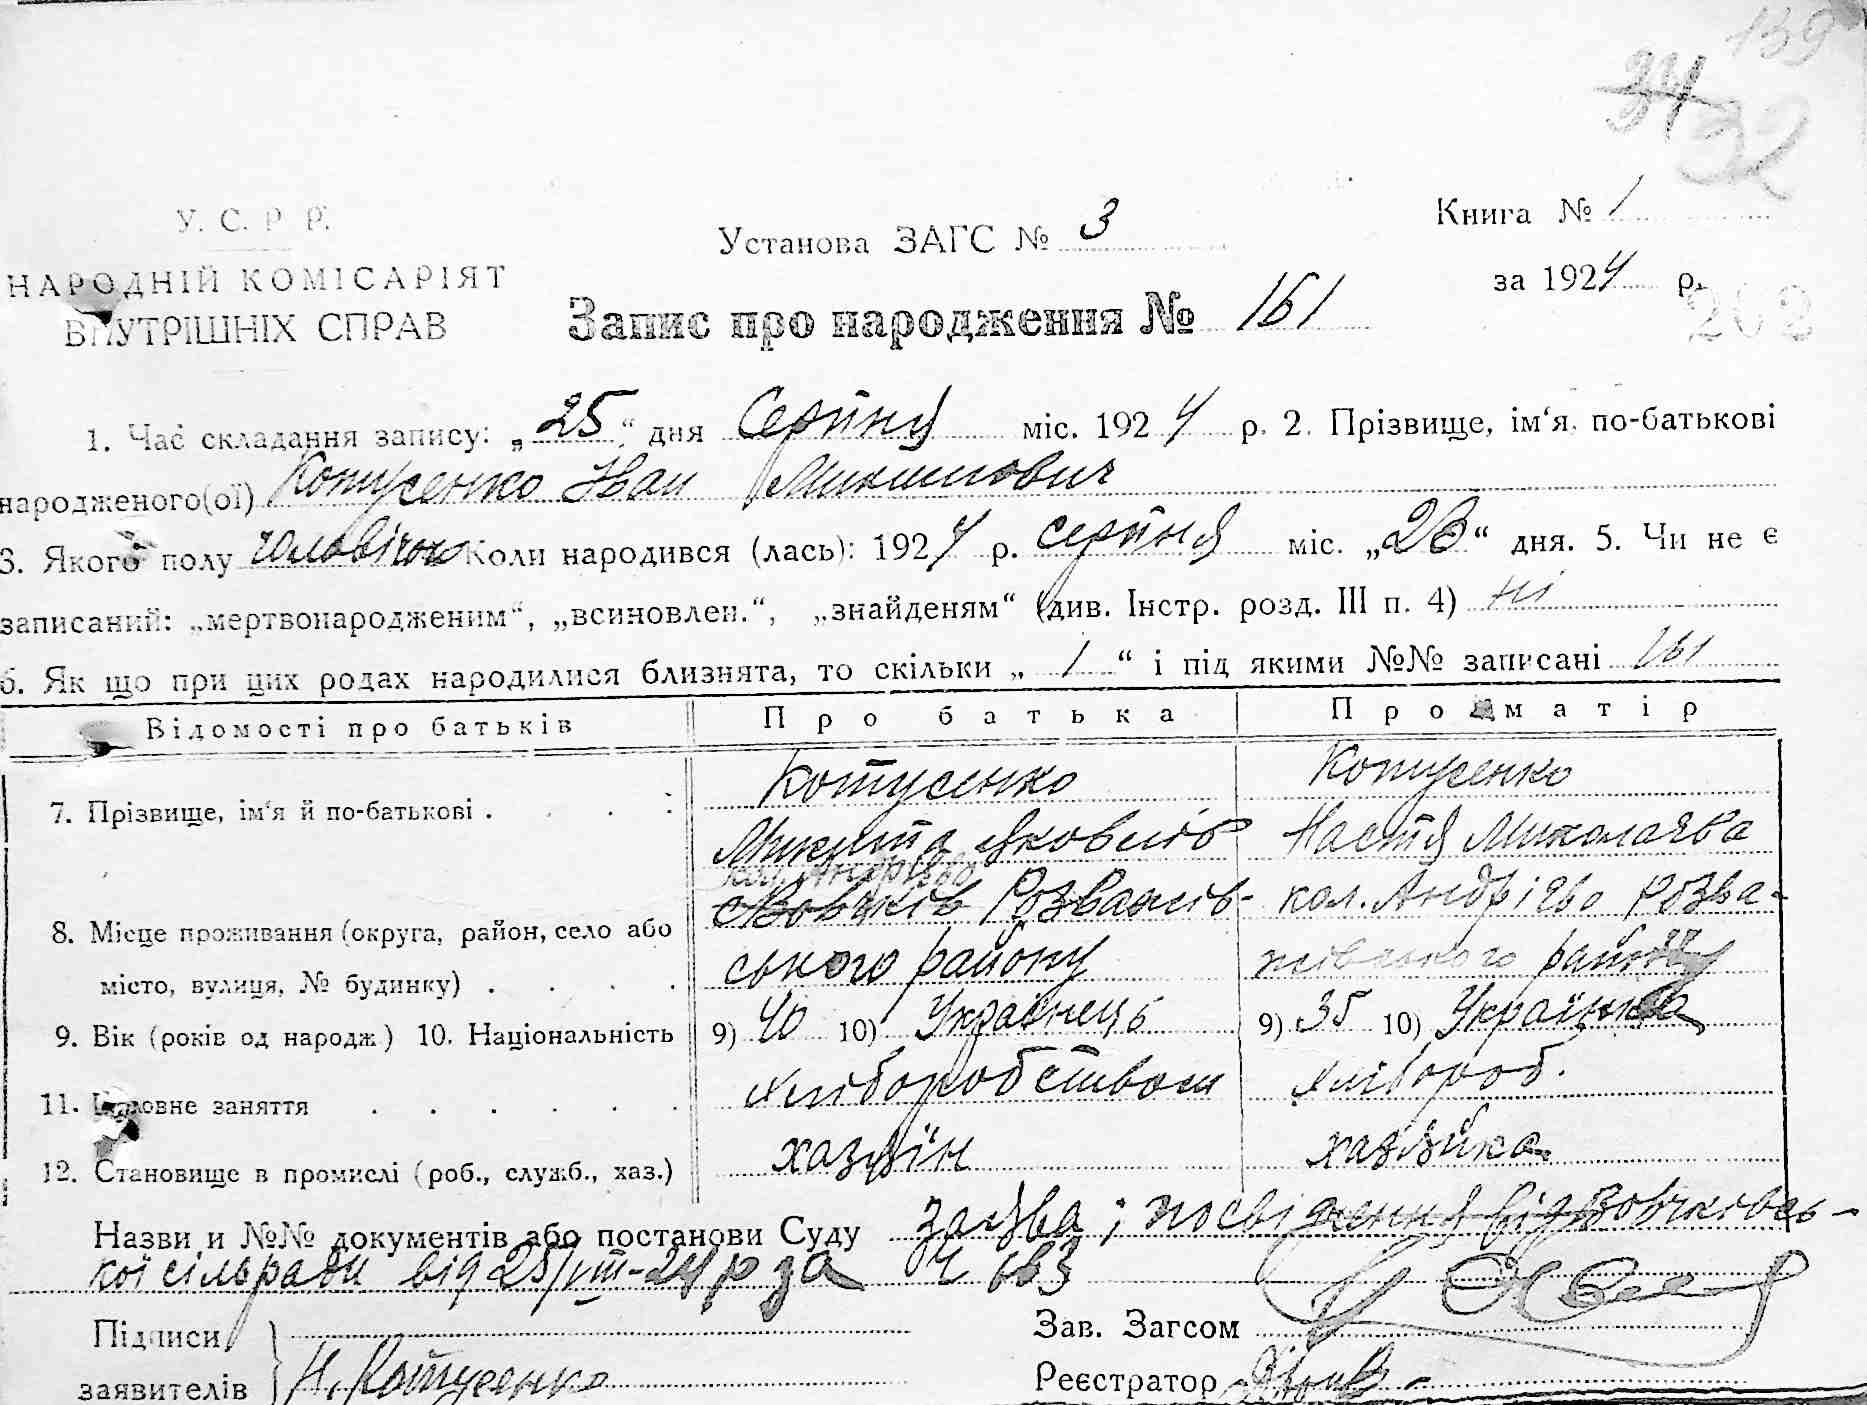 139
34
32
У. С. Р. Р.
НАРОДНІЙ КОМІСАРІЯТ
ВНУТРІШНІХ СПРАВ
Установа ЗАГС № 3
Книга № 1
за 1924 р.
202
Запис про народження № 161
1. Час складання запису: „25“ дня Серпня міс. 1924 р. 2. Прізвище, ім‘я, по-батькові
народженого(ої) Котусенко Іван Микитович
3. Якого полу чоловічого Коли народився (лась): 1924 р. серпня міс. „23“ дня. 5. Чи не є
записаний: „мертвонародженим“, „всиновлен.“, „знайденям“ (див. Інстр. розд. III п. 4) ні
6. Як що при цих родах народилися близнята, то скільки „ 1 “ і під якими №№ записані 161
Відомості про батьків
Про батька
Про матір
7. Прізвище, ім‘я й по-батькові
Котусенко
Микита Яковлів
Котусенко
Настя Миколаєва
8. Місце проживання (округа, район, село або
місто, вулиця, № будинку)
кол. Андрієво
Вовчків Розважів-
ського району
кол. Андрієво Розва-
жівського району
9. Вік (років од народж.) 10. Національність
9) 40 10) Українець
9) 35 10) Українка
11. Головне заняття
хліборобством
хлібороб.
12. Становище в промислі (роб., служб., хаз.)
хазяїн
хазяйка
Назви и №№ документів або постанови Суду заява; посвідчення від Вовчківсь-
кої сільради від 25/VIII-24 р за Ч 663
Підписи
заявителів
Н. Котусенко
Зав. Загсом
Реєстратор